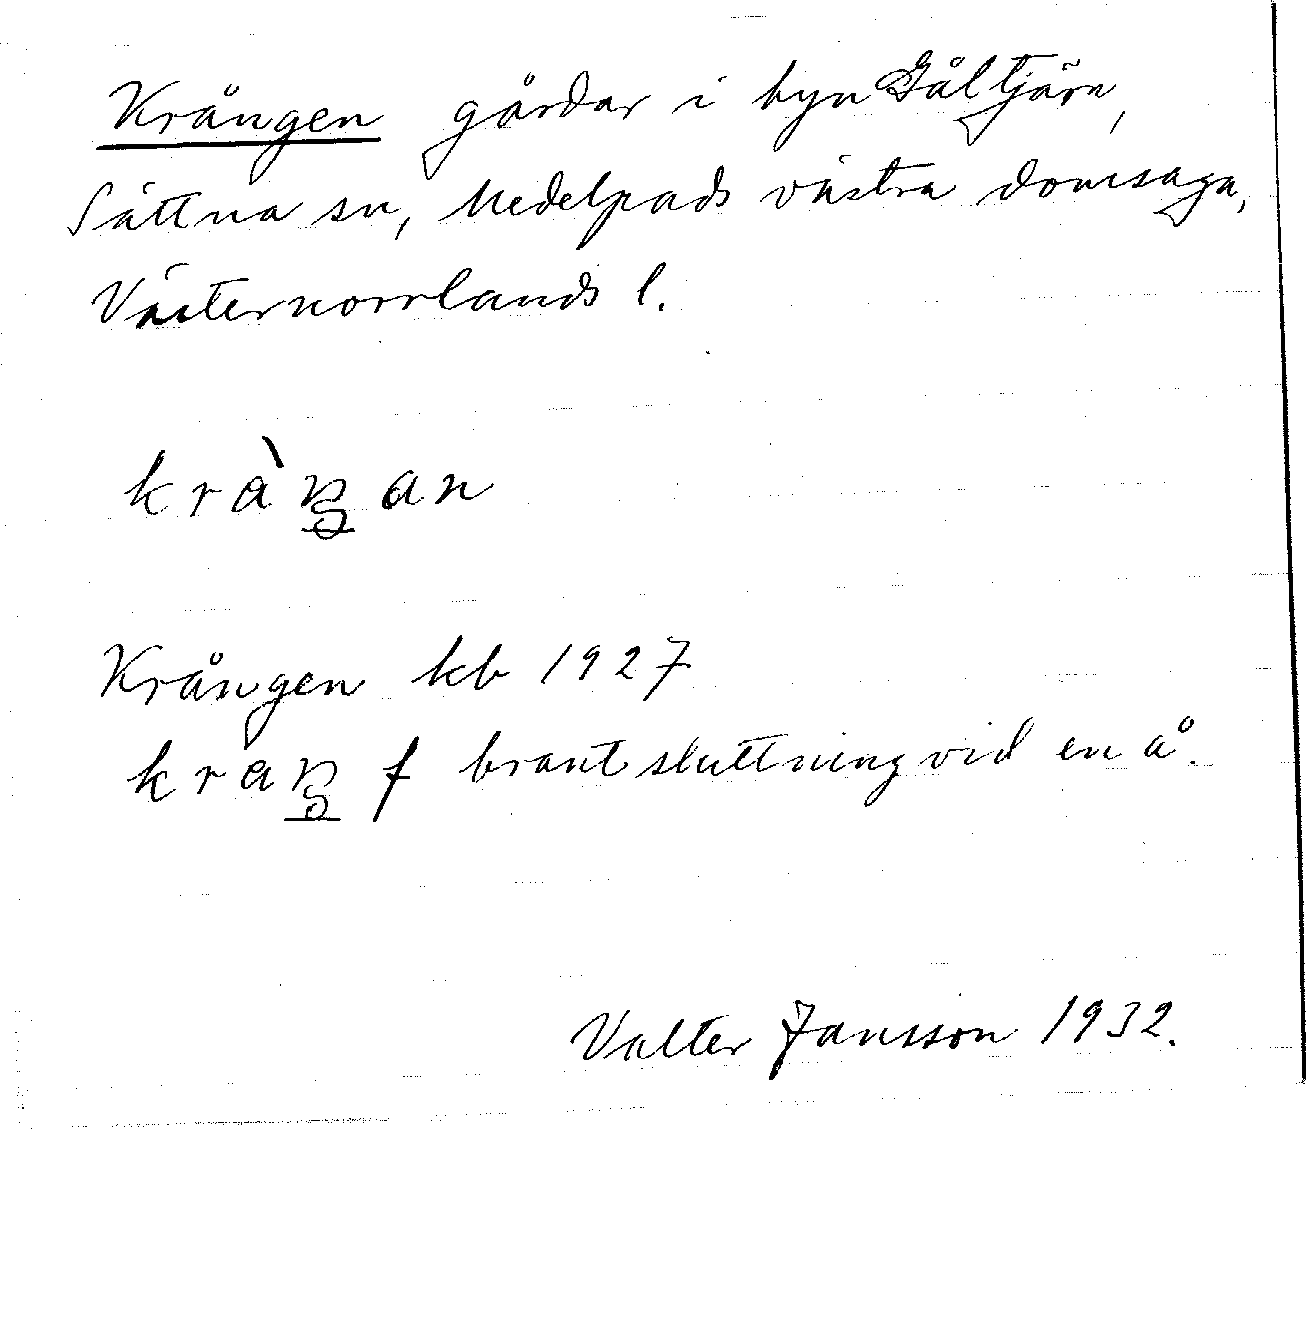 Krången gårdar i byn Gåltjärn,
Sättna sn, Medelpads västra domsaga,
Västernorrlands l.
kràŋan
Krången kb 1927
kraŋ f brant sluttning vid en å.
Valter Jansson 1932.